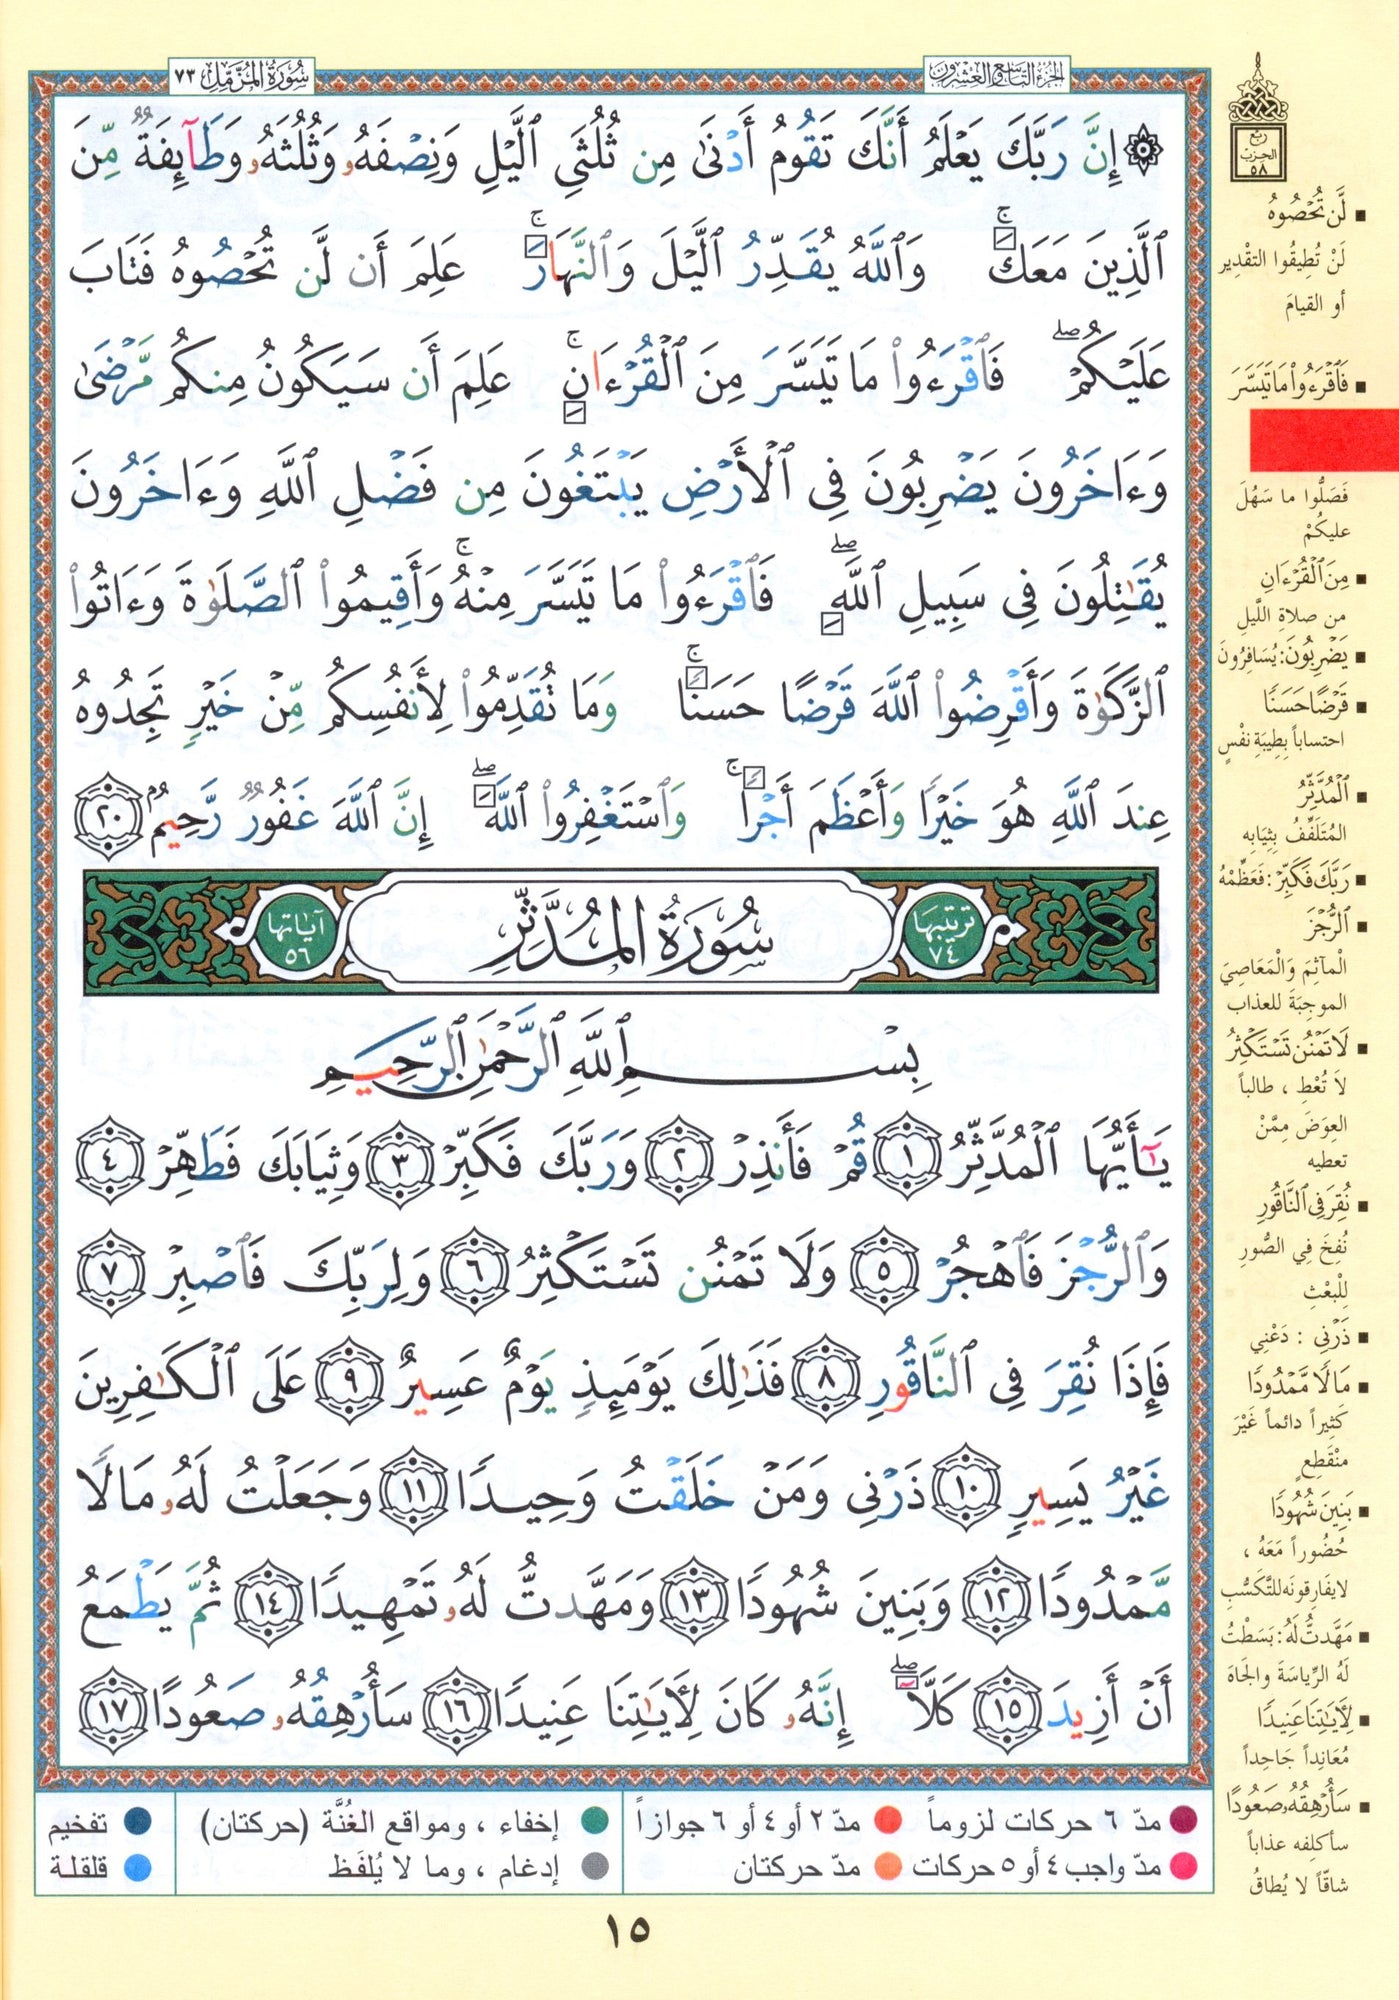 سُورَةُ المُزَّمِّل ٧٣
الجزء التاسع والعشرون
۞ إِنَّ رَبَّكَ يَعْلَمُ أَنَّكَ تَقُومُ أَدْنَىٰ مِن ثُلُثَىِ ٱلَّيْلِ وَنِصْفَهُۥ وَثُلُثَهُۥ وَطَآئِفَةٌ مِّنَ
ٱلَّذِينَ مَعَكَ ۚ وَٱللَّهُ يُقَدِّرُ ٱلَّيْلَ وَٱلنَّهَارَ ۚ عَلِمَ أَن لَّن تُحْصُوهُ فَتَابَ
عَلَيْكُمْ ۖ فَٱقْرَءُوا۟ مَا تَيَسَّرَ مِنَ ٱلْقُرْءَانِ ۚ عَلِمَ أَن سَيَكُونُ مِنكُم مَّرْضَىٰ
وَءَاخَرُونَ يَضْرِبُونَ فِى ٱلْأَرْضِ يَبْتَغُونَ مِن فَضْلِ ٱللَّهِ وَءَاخَرُونَ
يُقَٰتِلُونَ فِى سَبِيلِ ٱللَّهِ ۖ فَٱقْرَءُوا۟ مَا تَيَسَّرَ مِنْهُ ۚ وَأَقِيمُوا۟ ٱلصَّلَوٰةَ وَءَاتُوا۟
ٱلزَّكَوٰةَ وَأَقْرِضُوا۟ ٱللَّهَ قَرْضًا حَسَنًا ۚ وَمَا تُقَدِّمُوا۟ لِأَنفُسِكُم مِّنْ خَيْرٍ تَجِدُوهُ
عِندَ ٱللَّهِ هُوَ خَيْرًا وَأَعْظَمَ أَجْرًا ۚ وَٱسْتَغْفِرُوا۟ ٱللَّهَ ۖ إِنَّ ٱللَّهَ غَفُورٌ رَّحِيمٌ ٢٠
ترتيبها ٧٤ سُورَةُ المُدَّثِّرِ آياتها ٥٦
بِسْمِ ٱللَّهِ ٱلرَّحْمَٰنِ ٱلرَّحِيمِ
يَٰٓأَيُّهَا ٱلْمُدَّثِّرُ ١ قُمْ فَأَنذِرْ ٢ وَرَبَّكَ فَكَبِّرْ ٣ وَثِيَابَكَ فَطَهِّرْ ٤
وَٱلرُّجْزَ فَٱهْجُرْ ٥ وَلَا تَمْنُن تَسْتَكْثِرُ ٦ وَلِرَبِّكَ فَٱصْبِرْ ٧
فَإِذَا نُقِرَ فِى ٱلنَّاقُورِ ٨ فَذَٰلِكَ يَوْمَئِذٍ يَوْمٌ عَسِيرٌ ٩ عَلَى ٱلْكَٰفِرِينَ
غَيْرُ يَسِيرٍ ١٠ ذَرْنِى وَمَنْ خَلَقْتُ وَحِيدًا ١١ وَجَعَلْتُ لَهُۥ مَالًا
مَّمْدُودًا ١٢ وَبَنِينَ شُهُودًا ١٣ وَمَهَّدتُّ لَهُۥ تَمْهِيدًا ١٤ ثُمَّ يَطْمَعُ
أَنْ أَزِيدَ ١٥ كَلَّآ ۖ إِنَّهُۥ كَانَ لِـَٔايَٰتِنَا عَنِيدًا ١٦ سَأُرْهِقُهُۥ صَعُودًا ١٧
ربع
الحزب
٥٨
لَّن تُحْصُوهُ
لَنْ تُطِيقُوا التقْدِير
أو القيامَ
فَٱقْرَءُوا۟ مَا تَيَسَّرَ
فَصَلُّوا ما سَهُلَ
عليكُمْ
مِنَ ٱلْقُرْءَانِ
من صلاةِ اللَّيلِ
يَضْرِبُونَ: يُسَافِرُونَ
قَرْضًا حَسَنًا
احتساباً بِطِيبَةِ نفْسٍ
ٱلْمُدَّثِّرُ
المُتَلَفِّفُ بِثِيَابِه
رَبَّكَ فَكَبِّرْ: فَعَظِّمْهُ
ٱلرُّجْزَ
الْمآثِمَ وَالْمَعَاصِيَ
الموجِبَةَ للعذاب
لَا تَمْنُن تَسْتَكْثِرُ
لَا تُعْطِ ، طالباً
العِوَضَ مِمَّنْ
تعطيه
نُقِرَ فِى ٱلنَّاقُورِ
نُفِخَ فِي الصُّورِ
لِلْبعْثِ
ذَرْنِى : دَعْنِي
مَالًا مَّمْدُودًا
كَثِيراً دائماً غَيْرَ
منْقَطِعٍ
بَنِينَ شُهُودًا
حُضُوراً مَعَهُ ،
لا يفَارِقونَه للتَّكَسُّبِ
مَهَّدتُّ لَهُ: بَسَطْتُ
لَهُ الرِّياسَةَ والجَاهَ
لِـَٔايَٰتِنَا عَنِيدًا
مُعَانِداً جَاحِداً
سَأُرْهِقُهُۥ صَعُودًا
سأكلفه عذاباً
شاقّاً لا يُطاقُ
مدّ ٦ حركات لزوماً مدّ ٢ أو ٤ أو ٦ جوازاً إخفاء ، ومواقع الغُنَّة (حركتان) تفخيم
مدّ واجب ٤ أو ٥ حركات مدّ حركتان إدغام ، وما لا يُلفَظ قلقلة
١٥